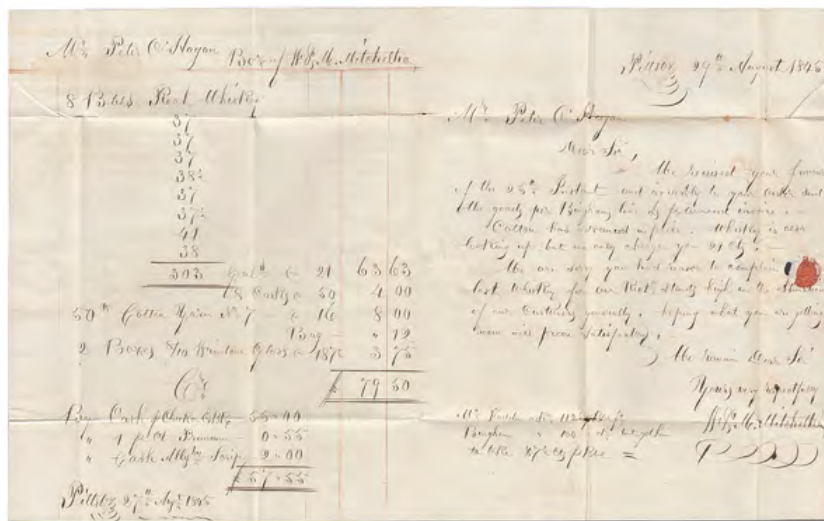 Mr. Peter O'Hagan Bot of W. & M. Mitcheltree
8 Bbls Rect Whisky
37
37
37
38½
37
37½
41
38
303 Galls @ 21 63 63
8 Casks @ 50 4 00
50 lb Cotton Yarn No 7 @ 16 8 00
Bag " 12
2 Boxes 8/10 Window Glass @ 187½ 3 75
$ 79 50
Cr
By Cash 55-00
" 1 pct Premium 0-55
" Cash Allgy Scrip 2-00
$ 57-55
Pittsbg 27th Augt 1845
Pittsbg 27th August 1845
Mr. Peter O'Hagan
Dear Sir,
We received your favour
of the 25th Instant and agreeably to your order send
the goods per Bingham's line as per annexed invoice.
Cotton has advanced in price. Whisky is also
looking up but we only charge you 21 cts.
We are sorry you had reason to complain
last Whisky for our Rect stands high in the
of our customers generally. hoping what you are getting
now will prove satisfactory.
We remain Dear Sir
Yours very respectfully
W. & M. Mitcheltree
Mr. asks 112
Bingham " 100 cts weight
to take 87½ cts p Bbl =